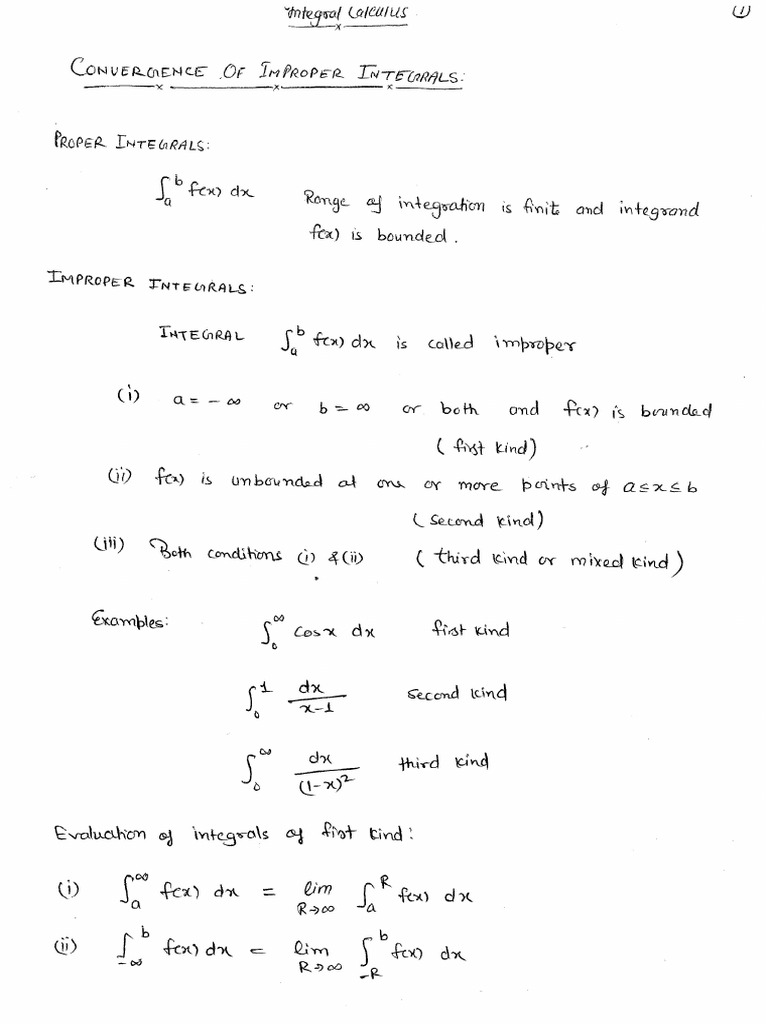 Integral Calculus
①
CONVERGENCE OF IMPROPER INTEGRALS:
PROPER INTEGRALS:
∫_a^b f(x) dx Range of integration is finite and integrand
f(x) is bounded.
IMPROPER INTEGRALS:
INTEGRAL ∫_a^b f(x) dx is called improper
(i) a = -∞ or b = ∞ or both and f(x) is bounded
(first kind)
(ii) f(x) is unbounded at one or more points of a≤x≤b
(second kind)
(iii) Both conditions (i) &(ii) (third kind or mixed kind)
Examples: ∫_0^∞ cosx dx first kind
∫_0^1 dx/(x-1) second kind
∫_0^∞ dx/(1-x)^2 third kind
Evaluation of integrals of first kind:
(i) ∫_a^∞ f(x) dx = lim_{R→∞} ∫_a^R f(x) dx
(ii) ∫_{-∞}^b f(x) dx = lim_{R→∞} ∫_{-R}^b f(x) dx